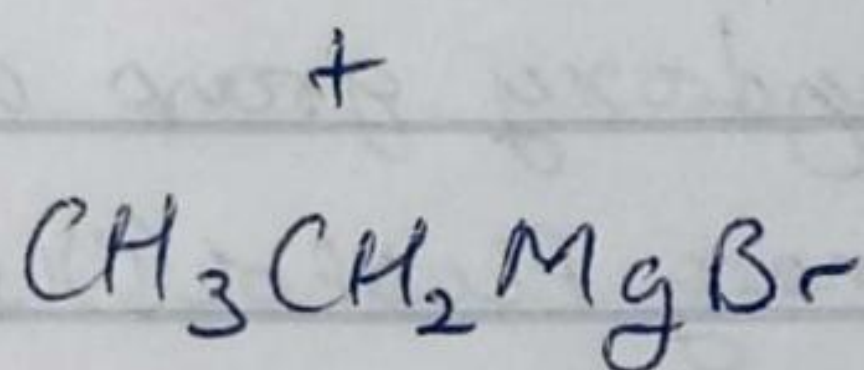 +
CH₃CH₂MgBr